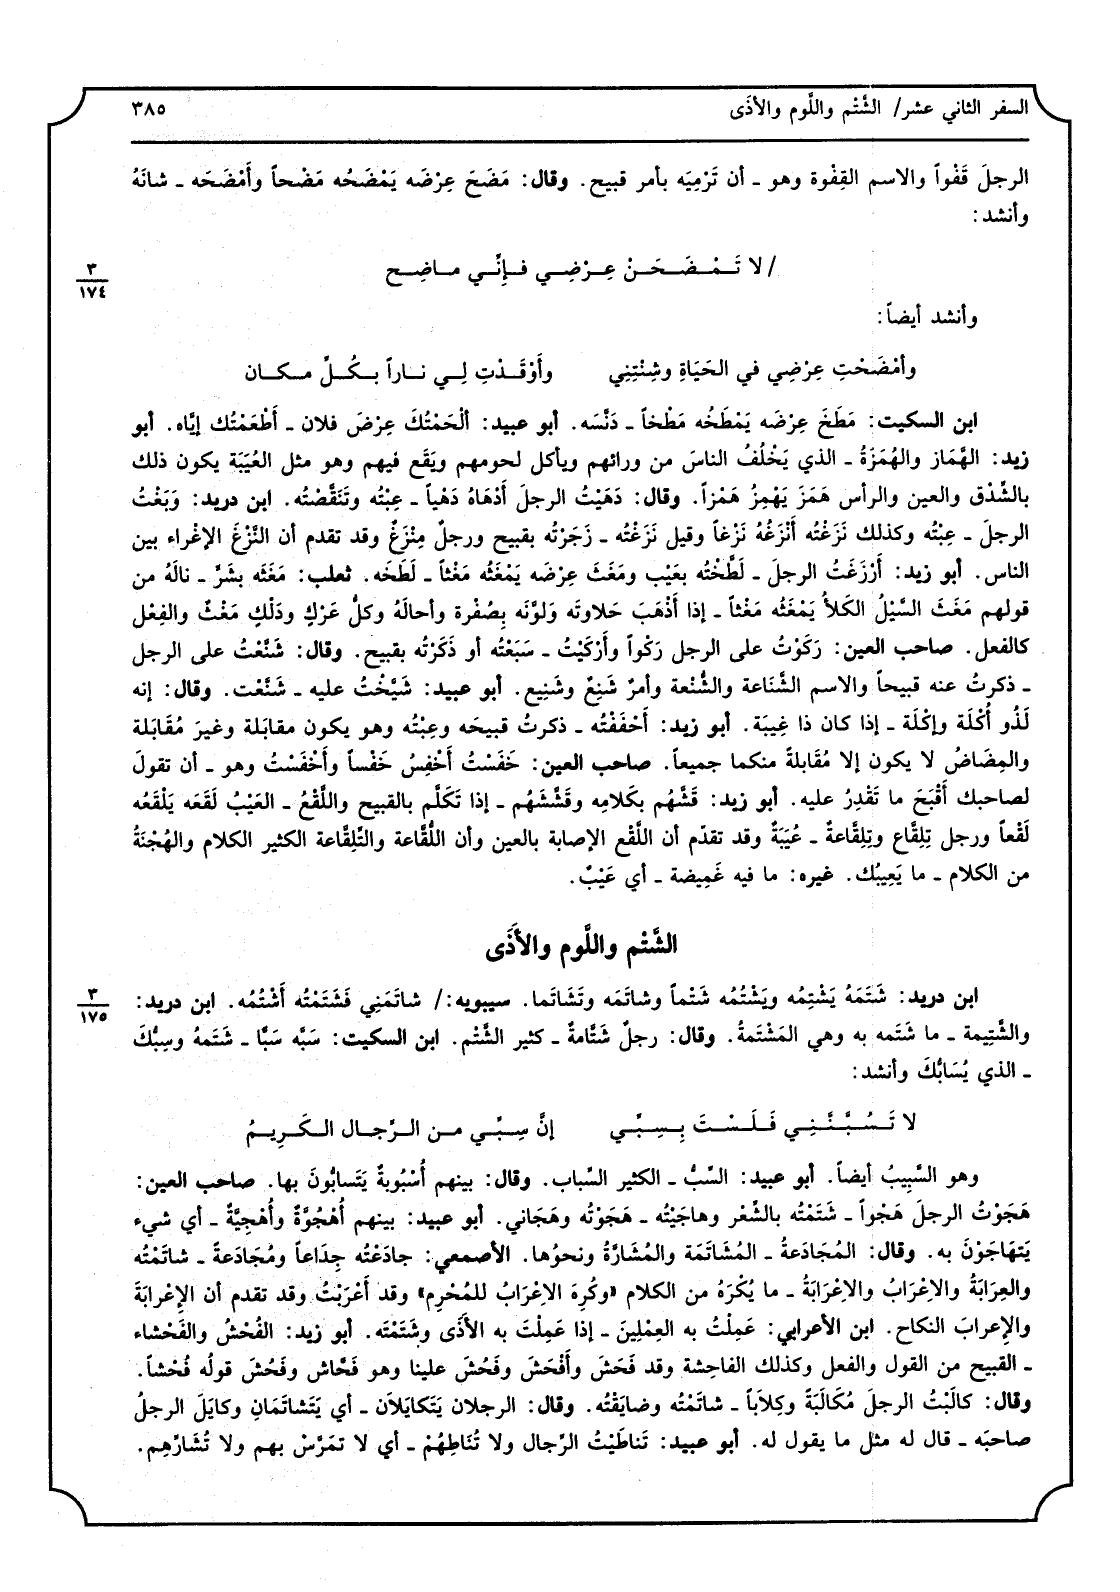 السفر الثاني عشر/ الشَّتْم واللَّوم والأَذَى
٣٨٥
الرجلَ قَفْواً والاسم القِفْوة وهو ـ أن تَرْمِيَه بأمر قبيح. وقال: مَضَحَ عِرْضَه يَمْضَحُه مَضْحاً وأَمْضَحَه ـ شانَهُ
وأنشد:
/ لا تَــمْــضَــحَــنْ عِــرْضِــي فــإِنِّــي مــاضِــح
٣
١٧٤
وأنشد أيضاً:
وأمْضَحْتِ عِرْضِي في الحَيَاةِ وشِنْتِنِي وأَوْقَــدْتِ لِــي نــاراً بــكُــلِّ مــكــان
ابن السكيت: مَطَخَ عِرْضَه يَمْطَخُه مَطْخاً ـ دَنَّسَه. أبو عبيد: ألْحَمْتُكَ عِرْضَ فلان ـ أَطْعَمْتُك إيَّاه. أبو
زيد: الهَّمَاز والهُمَزَةُ ـ الذي يَخْلُفُ الناسَ من ورائهم ويأكل لحومهم ويَقَع فيهم وهو مثل العُيَبَة يكون ذلك
بالشِّدْق والعين والرأس هَمَزَ يَهْمِزُ هَمْزاً. وقال: دَهَيْتُ الرجلَ أدْهَاهُ دَهْياً ـ عِبْتُه وتَنَقَّصْتُه. ابن دريد: وَبَغْتُ
الرجلَ ـ عِبْتُه وكذلك نَزَغْتُه أَنْزَغُهُ نَزْغاً وقيل نَزَغْتُه ـ زَجَرْتُه بقبيح ورجلٌ مِنْزَغٌ وقد تقدم أن النَّزْغَ الإغْراء بين
الناس. أبو زيد: أَرْزَغَتُ الرجلَ ـ لَطَّخْتُه بعَيْب ومَغَثَ عِرْضَه يَمْغَثُه مَغْثاً ـ لَطَخَه. ثعلب: مَغَثَه بشَرّ ـ نالَهُ من
قولهم مَغَثَ السَّيْلُ الكَلأَ يَمْغَثُه مَغْثاً ـ إذا أَذْهَبَ حَلاوتَه ولَوَّنَه بِصُفْرة وأحالَهُ وكلُّ عَرْكٍ ودَلْكٍ مَغْثٌ والفِعْل
كالفعل. صاحب العين: رَكَوْتُ على الرجل رَكْواً وأَرْكَيْتُ ـ سَبَعْتُه أو ذَكَرْتُه بقبيح. وقال: شَنَّعْتُ على الرجل
ـ ذكرتُ عنه قبيحاً والاسم الشَّنَاعة والشُّنْعة وأمرٌ شَنِعٌ وشَنِيع. أبو عبيد: شَيَّخْتُ عليه ـ شَنَّعْت. وقال: إنه
لَذُو أُكْلَة وإكْلَة ـ إذا كان ذا غِيبَة. أبو زيد: أَحْفَفْتُه ـ ذكرتُ قبيحَه وعِبْتُه وهو يكون مقابَلة وغيرَ مُقَابَلة
والمِضَاضُ لا يكون إلا مُقَابلةً منكما جميعاً. صاحب العين: خَفَسْتُ أَخْفِسُ خَفْساً وأَخْفَسْتُ وهو ـ أن تقولَ
لصاحبك أَقْبَحَ ما تَقْدِرُ عليه. أبو زيد: قَشَّهُم بكَلامِه وقَشَّشَهُم ـ إذا تَكَلَّم بالقبيح واللَّقْعُ ـ العَيْبُ لَقَعَه يَلْقَعُه
لَقْعاً ورجل تِلِقَّاع وتِلِقَّاعةٌ ـ عُيَبَةٌ وقد تقدّم أن اللَّقْع الإصابة بالعين وأن اللُّقَّاعة والتَّلِقَّاعة الكثير الكلام والهُجْنَةُ
من الكلام ـ ما يَعِيبُك. غيره: ما فيه غَمِيضة ـ أي عَيْبٌ.
الشَّتْم واللَّوم والأَذَى
ابن دريد: شَتَمَهُ يَشْتِمُه ويَشْتُمُه شَتْماً وشاتَمَه وتَشَاتَما. سيبويه:/ شاتَمَنِي فَشَتَمْتُه أَشْتُمُه. ابن دريد:
٣
١٧٥
والشَّتِيمة ـ ما شَتَمه به وهي المَشْتَمةُ. وقال: رجلٌ شَتَّامةٌ ـ كثير الشَّتْم. ابن السكيت: سَبَّه سَبًّا ـ شَتَمَهُ وسِبُّكَ
ـ الذي يُسَابُّكَ وأنشد:
لا تَــسُــبَّــنَّــنِــي فَــلَــسْــتَ بِــسِــبِّــي إنَّ سِــبِّــي مــن الــرِّجــال الــكَــرِيــمُ
وهو السَّبِيبُ أيضاً. أبو عبيد: السِّبُّ ـ الكثير السِّباب. وقال: بينهم أُسْبُوبةٌ يَتَسابُّونَ بها. صاحب العين:
هَجَوْتُ الرجلَ هَجْواً ـ شَتَمْتُه بالشِّعْر وهاجَيْتُه ـ هَجَوْتُه وهَجَاني. أبو عبيد: بينهم أُهْجُوَّةٌ وأُهْجِيَّةٌ ـ أي شيء
يَتَهَاجَوْنَ به. وقال: المُجَادَعةُ ـ المُشَاتَمَة والمُشَارَّةُ ونحوُها. الأصمعي: جادَعْتُه جِدَاعاً ومُجَادَعةً ـ شاتَمْتُه
والعِرَابَةُ والاِعْرَابُ والاِعْرَابَةُ ـ ما يُكْرَهُ من الكلام «وكُرِهَ الاِعْرَابُ للمُحْرِم» وقد أَعْرَبْتُ وقد تقدم أن الإعْرابَةَ
والإعرابَ النكاح. ابن الأعرابي: عَمِلْتُ به العِمْلِينَ ـ إذا عَمِلْتَ به الأذَى وشَتَمْتَه. أبو زيد: الفُحْشُ والفَحْشاء
ـ القبيح من القول والفعل وكذلك الفاحِشة وقد فَحَشَ وأَفْحَشَ وفَحُشَ علينا وهو فَحَّاش وفَحُشَ قولُه فُحْشاً.
وقال: كالَبْتُ الرجلَ مُكَالَبَةً وكِلاَباً ـ شاتَمْتُه وضايَقْتُه. وقال: الرجلان يَتَكايَلاَن ـ أي يَتَشاتَمَانِ وكايَلَ الرجلُ
صاحبَه ـ قال له مثل ما يقول له. أبو عبيد: تَناطَيْتُ الرِّجال ولا تُنَاطِهُمْ ـ أي لا تمَرَّسْ بهم ولا تُشَارِّهِم.